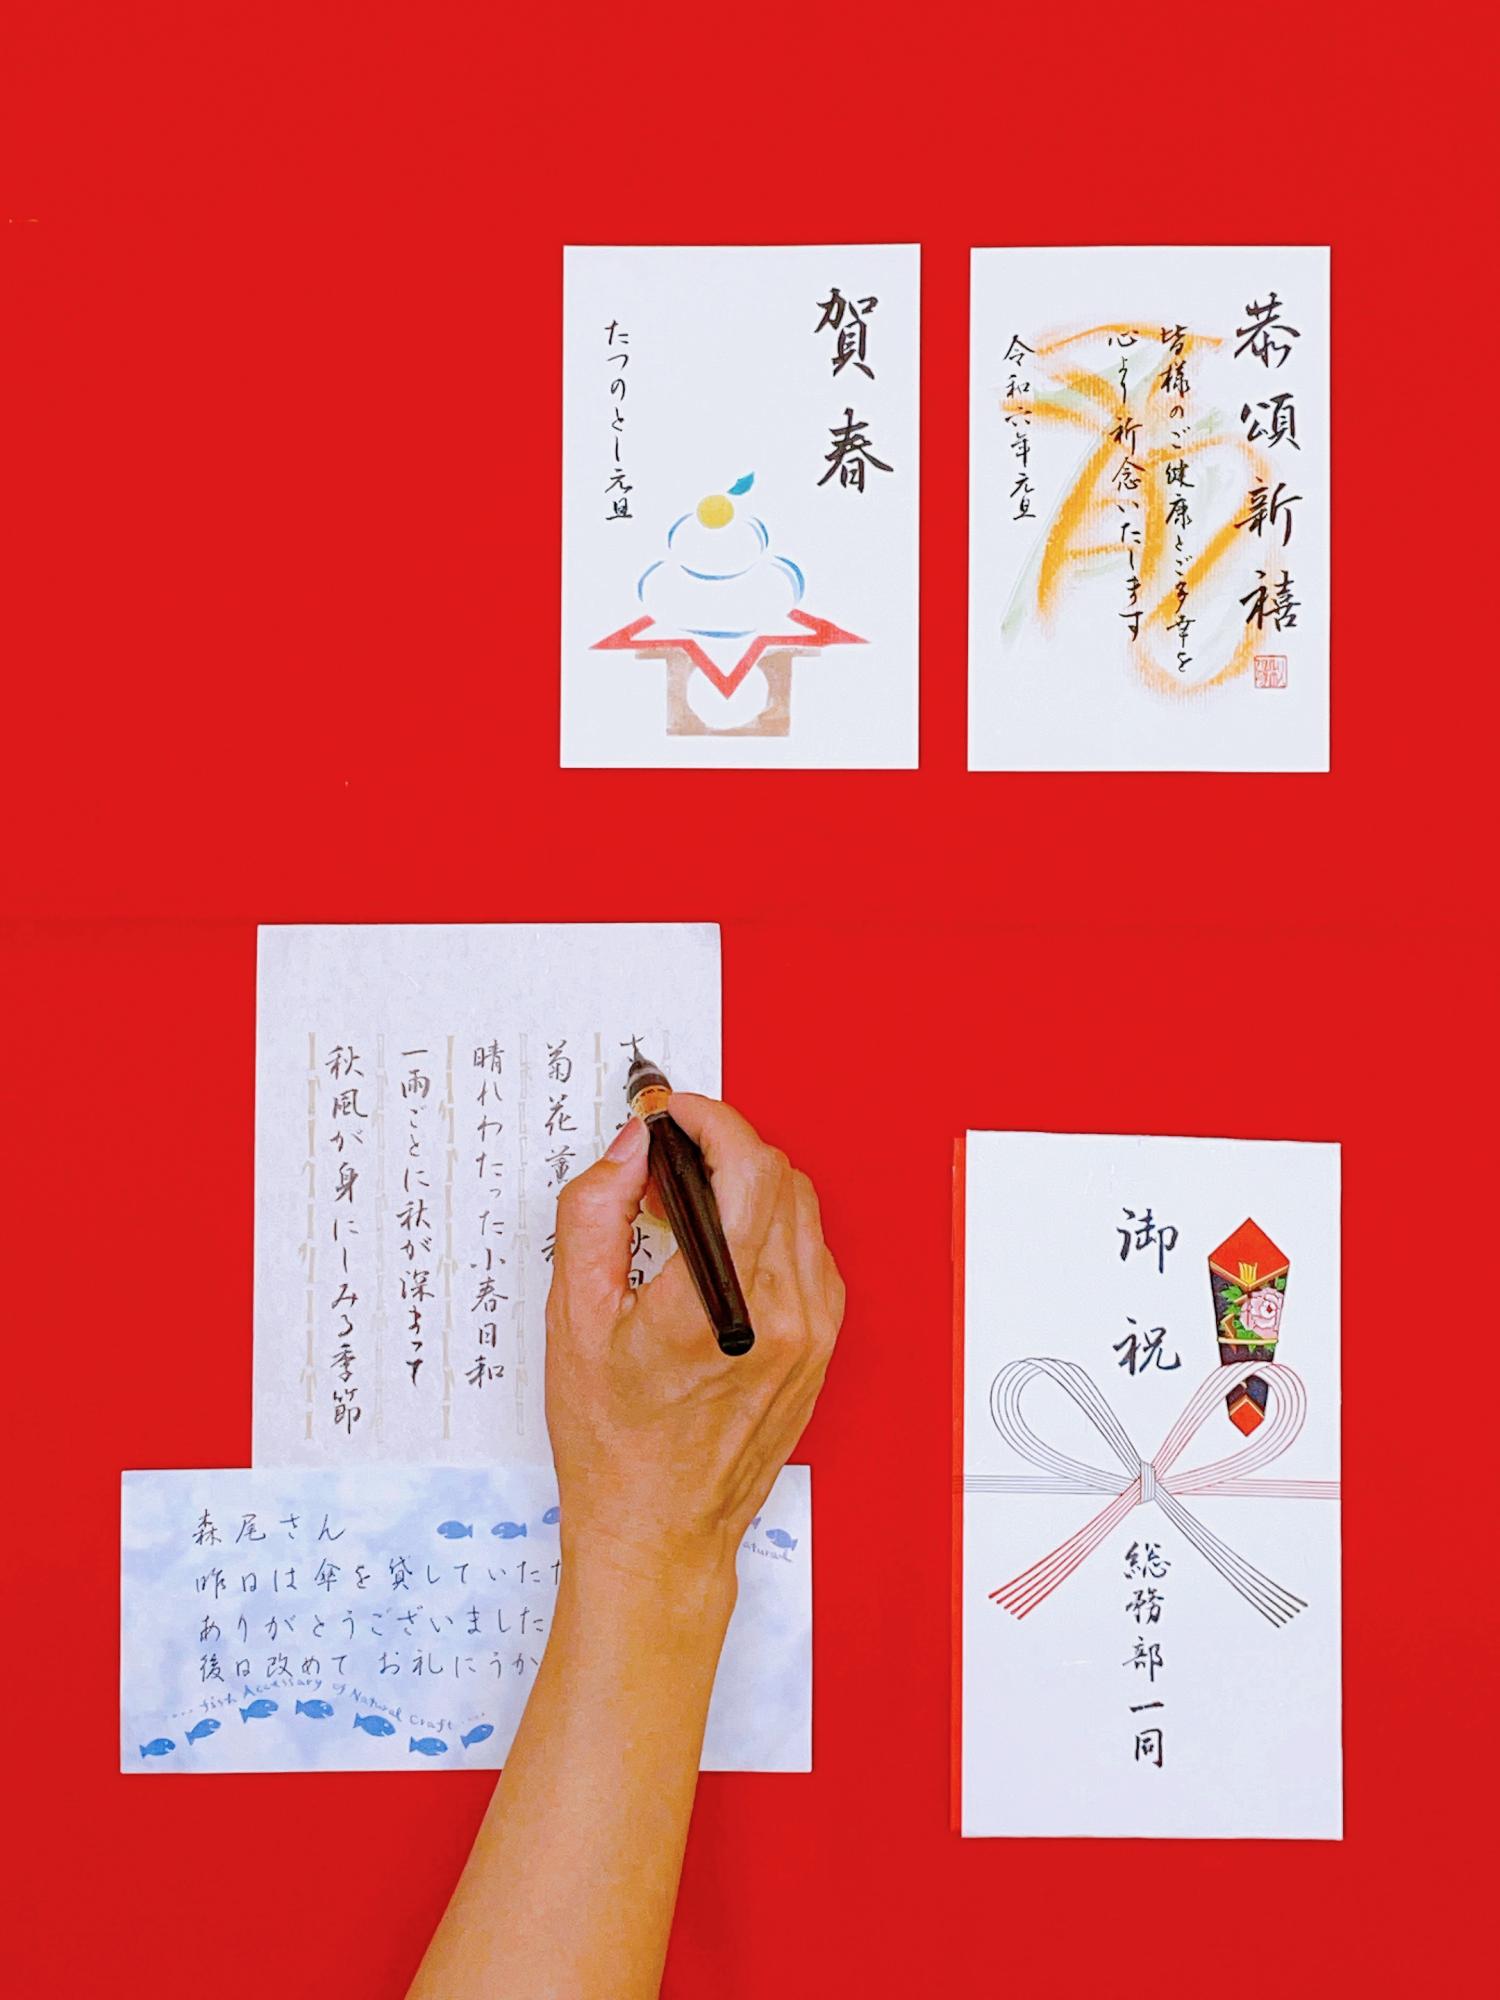 恭頌新禧
皆様のご健康とご多幸を
心より祈念いたします
令和六年元旦
賀春
たつのとし元旦
秋
菊花薫
晴れわたった小春日和
一雨ごとに秋が深まって
秋風が身にしみる季節
森尾さん
昨日は傘を貸していただ
ありがとうございました
後日改めて お礼にうか
fish Accessary of Natural Craft
御祝
総務部一同